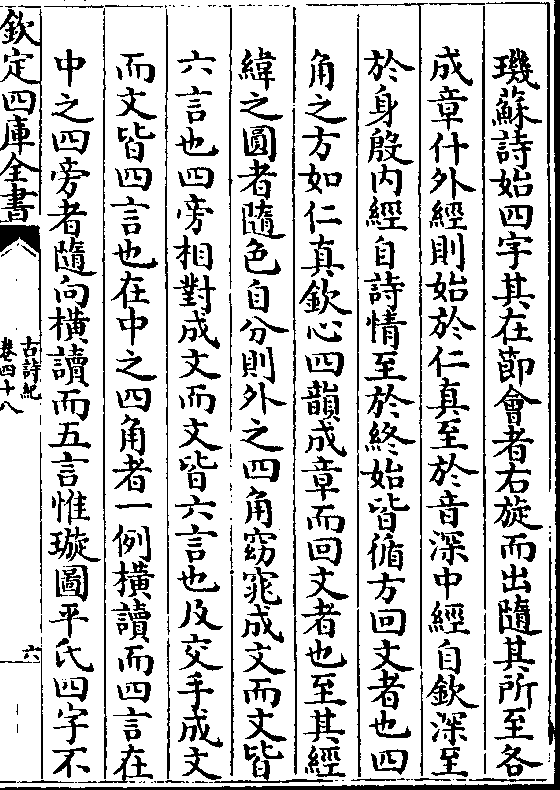 璣蘇詩始四字其在節會者右旋而出隨其所至各
成章什外經則始於仁真至於音深中經自欽深至
於身殷内經自詩情至於終始皆循方回文者也四
角之方如仁真欽心四韻成章而回文者也至其經
緯之圓者隨色自分則外之四角窈窕成文而文皆
六言也四旁相對成文而文皆六言也及交手成文
而文皆四言也在中之四角者一例橫讀而四言在
中之四旁者隨向橫讀而五言惟璇圖平氏四字不
欽定四庫全書
古詩紀
卷四十八
六